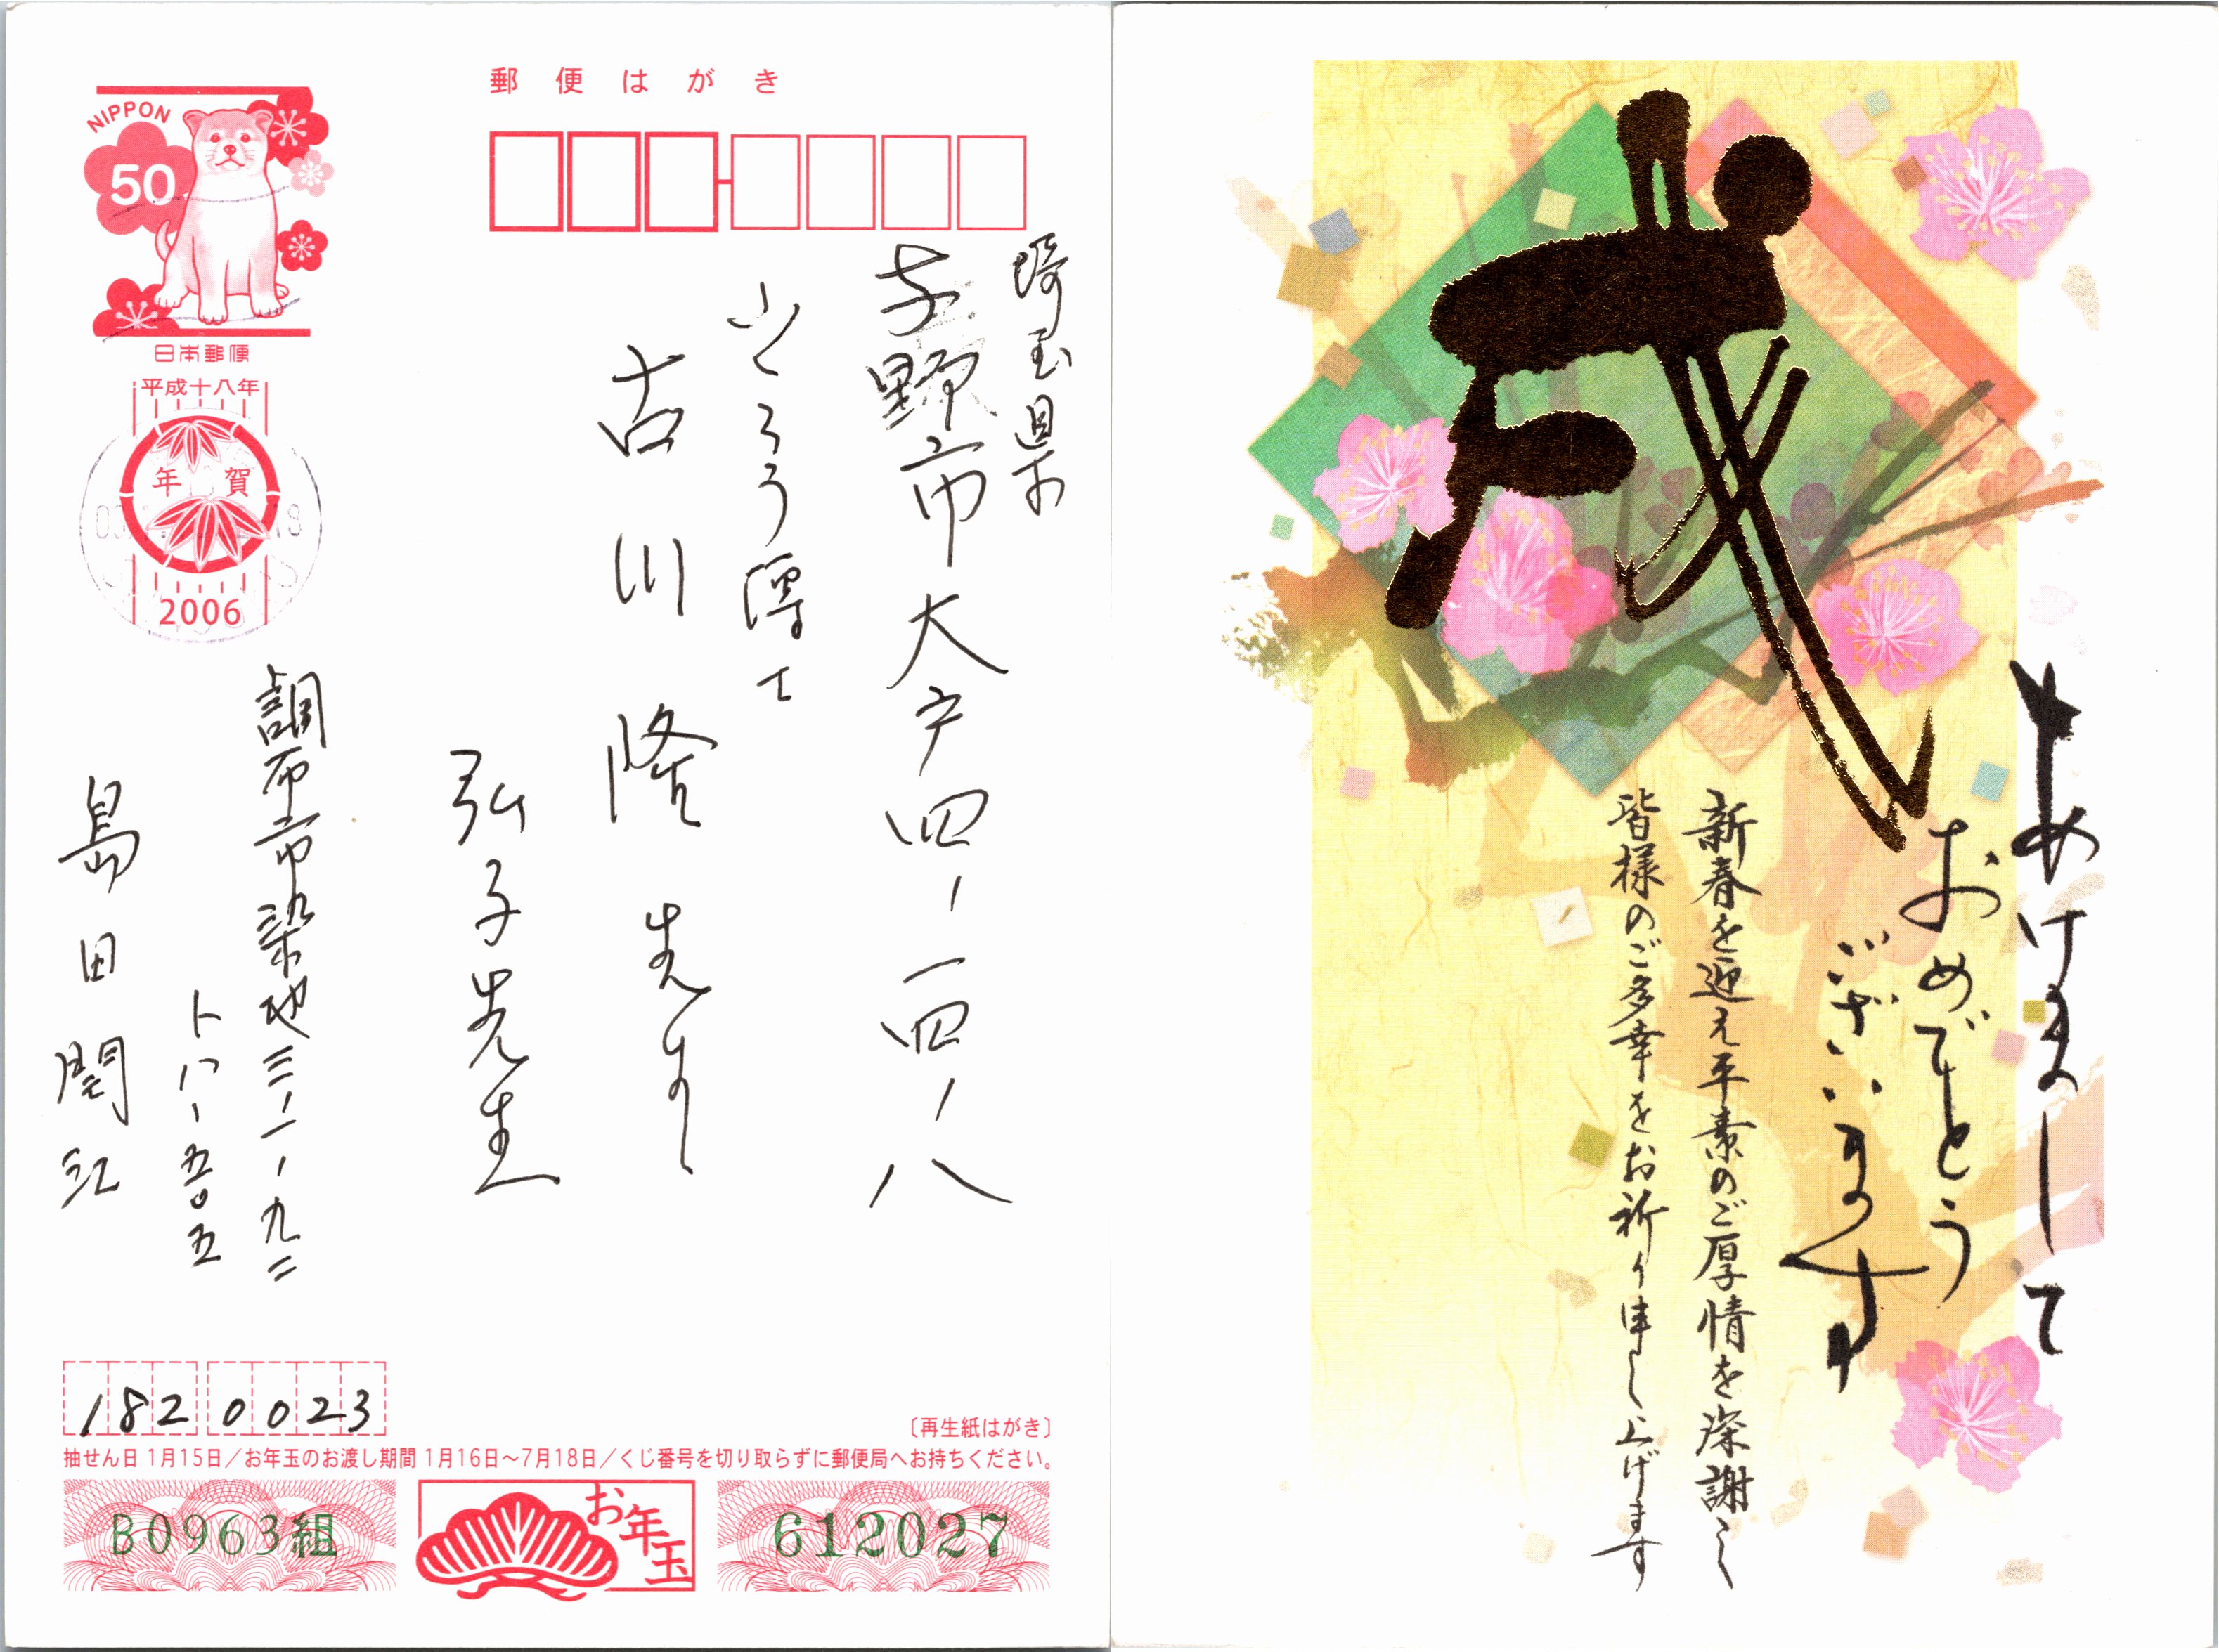 郵便はがき
NIPPON
50
日本郵便
平成十八年
年賀
2006
埼玉県
与野市大戸四ー一四ー八
古川隆先生
弘子先生
調布市染地三ー一ー九二
トハー五〇五
島田閏江
182 0023
〔再生紙はがき〕
抽せん日 1月15日／お年玉のお渡し期間 1月16日〜7月18日／くじ番号を切り取らずに郵便局へお持ちください。
B0963組
お年玉
612027
戌
あけまして
おめでとう
ございます
新春を迎え平素のご厚情を深謝し
皆様のご多幸をお祈り申し上げます